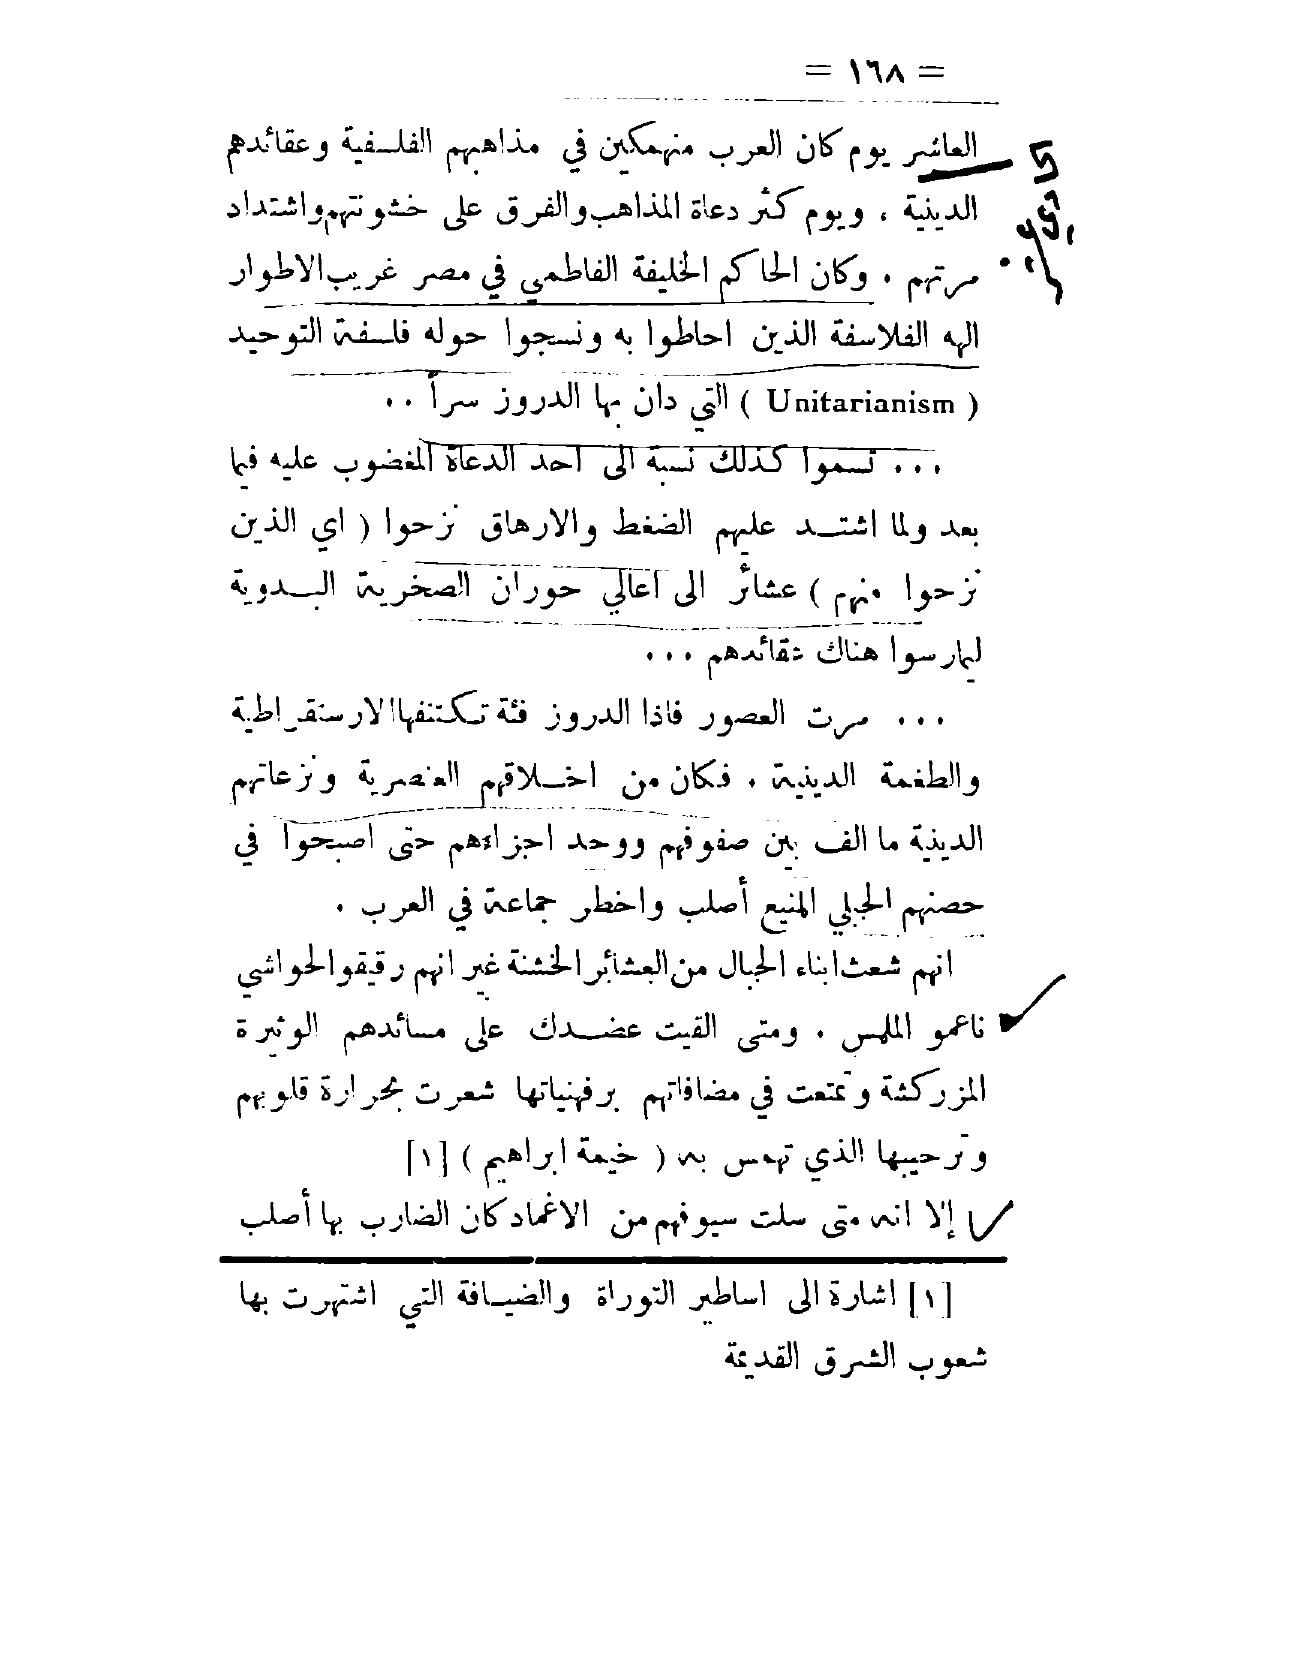 = ١٦٨ =
العاشر يوم كان العرب منهمكين في مذاهبهم الفلسفية وعقائدهم
الدينية ، ويوم كثر دعاة المذاهب والفرق على خشونتهم واشتداد
مرتهم . وكان الحاكم الخليفة الفاطمي في مصر غريب الاطوار
الهه الفلاسفة الذين احاطوا به ونسجوا حوله فلسفة التوحيد
( Unitarianism ) التي دان بها الدروز سراً ..
... تسموا كذلك نسبة الى احد الدعاة المغضوب عليه فيما
بعد ولما اشتد عليهم الضغط والارهاق نزحوا ( اي الذين
نزحوا منهم ) عشائر الى اعالي حوران الصخرية البدوية
ليمارسوا هناك عقائدهم ...
... مرت العصور فاذا الدروز فئة تكتنفها الارستقراطية
والطغمة الدينية . فكان من اخلاقهم العنصرية ونزعاتهم
الدينية ما الف بين صفوفهم ووحد اجزاءهم حتى اصبحوا في
حصنهم الجبلي المنيع أصلب واخطر جماعة في العرب .
انهم شعث ابناء الجبال من العشائر الخشنة غير انهم رقيقو الحواشي
ناعمو الملمس . ومتى القيت عضدك على مسائدهم الوثيرة
المزركشة وتمتعت في مضافاتهم برفهنياتها شعرت بحرارة قلوبهم
وترحيبها الذي تهمس به ( خيمة ابراهيم ) [١]
إلا انه متى سلت سيوفهم من الاغماد كان الضارب بها أصلب
[١] اشارة الى اساطير التوراة والضيافة التي اشتهرت بها
شعوب الشرق القديمة